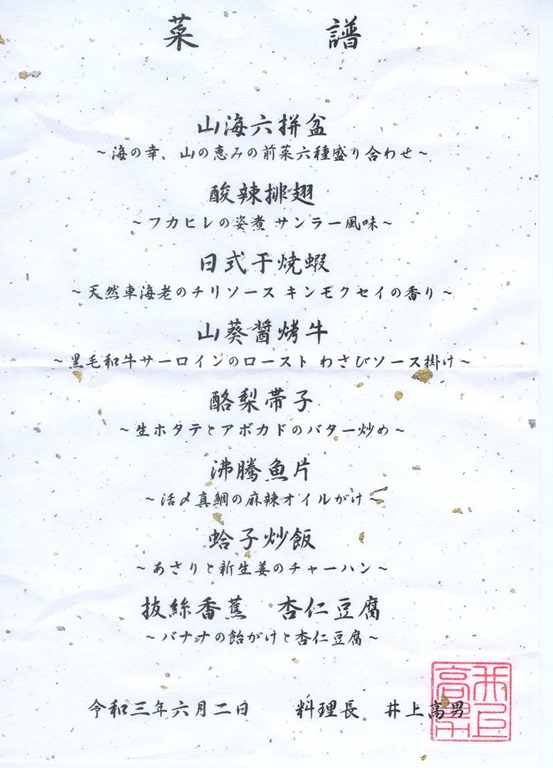 菜 譜
山海六拼盆
~海の幸、山の恵みの前菜六種盛り合わせ~
酸辣排翅
~フカヒレの姿煮 サンラー風味~
日式干焼蝦
~天然車海老のチリソース キンモクセイの香り~
山葵醤烤牛
~黒毛和牛サーロインのロースト わさびソース掛け~
酪梨帯子
~生ホタテとアボカドのバター炒め~
沸騰魚片
~活〆真鯛の麻辣オイルがけ~
蛤子炒飯
~あさりと新生姜のチャーハン~
抜絲香蕉 杏仁豆腐
~バナナの飴がけと杏仁豆腐~
令和三年六月二日 料理長 井上高男